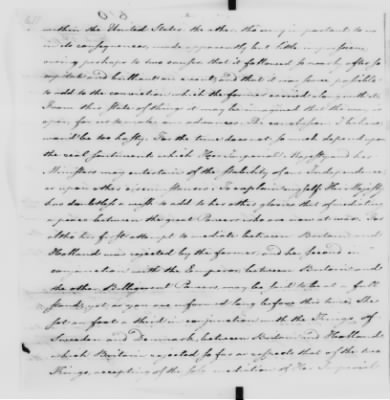 within the United States, the other, tho' very important to us
in its consequences, made apparently but little impression,
owing perhaps to two causes that it followed so nearly after so
capital and brilliant an event; and that it was scarce possible
to add to the conviction which the former carried along with it.
From this State of things it may be imagined that the way is
open for us to make our advances. The conclusion I believe
would be too hasty. For the time does not so much depend upon
the real sentiment which Her Imperial Majesty and her
Ministers may entertain of the Stability of our Independence,
as upon other circumstances. To explain myself: Her Majesty
has doubtless a wish to add to her other glories that of mediating
a peace between the great Powers who are now at war. For
altho her first attempt to mediate between Britain and
Holland was rejected by the former, and her second in
conjunction with the Emperor between Britain and
the other Belligerent Powers may be said to be at a full
stand, yet, as you are informed long before this time, She
set on foot a third in conjunction with the Kings of
Sweden and Denmark, between Britain and Holland,
which Britain rejected so far as respects that of the two
Kings, accepting of the sole mediation of Her Imperial